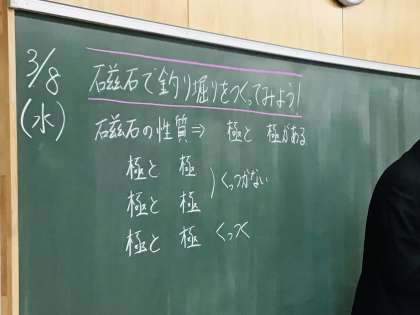 3/8
(水)
磁石で釣り堀りをつくってみよう!
磁石の性質⇒ 極と 極がある
極と 極
極と 極 ) くっつかない
極と 極 くっつく